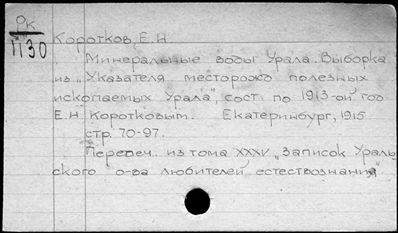 Рк
1130
Коротков, Е.Н.
Минеральные воды Урала. Выборка
из „Указателя месторожд полезных
ископаемых Урала", сост. по 1913-ой год
Е.Н. Коротковым. Екатеринбург, 1915
стр. 70-97.
Перепеч. из тома XXXV „Записок Ураль
ского о-ва любителей естествознания"